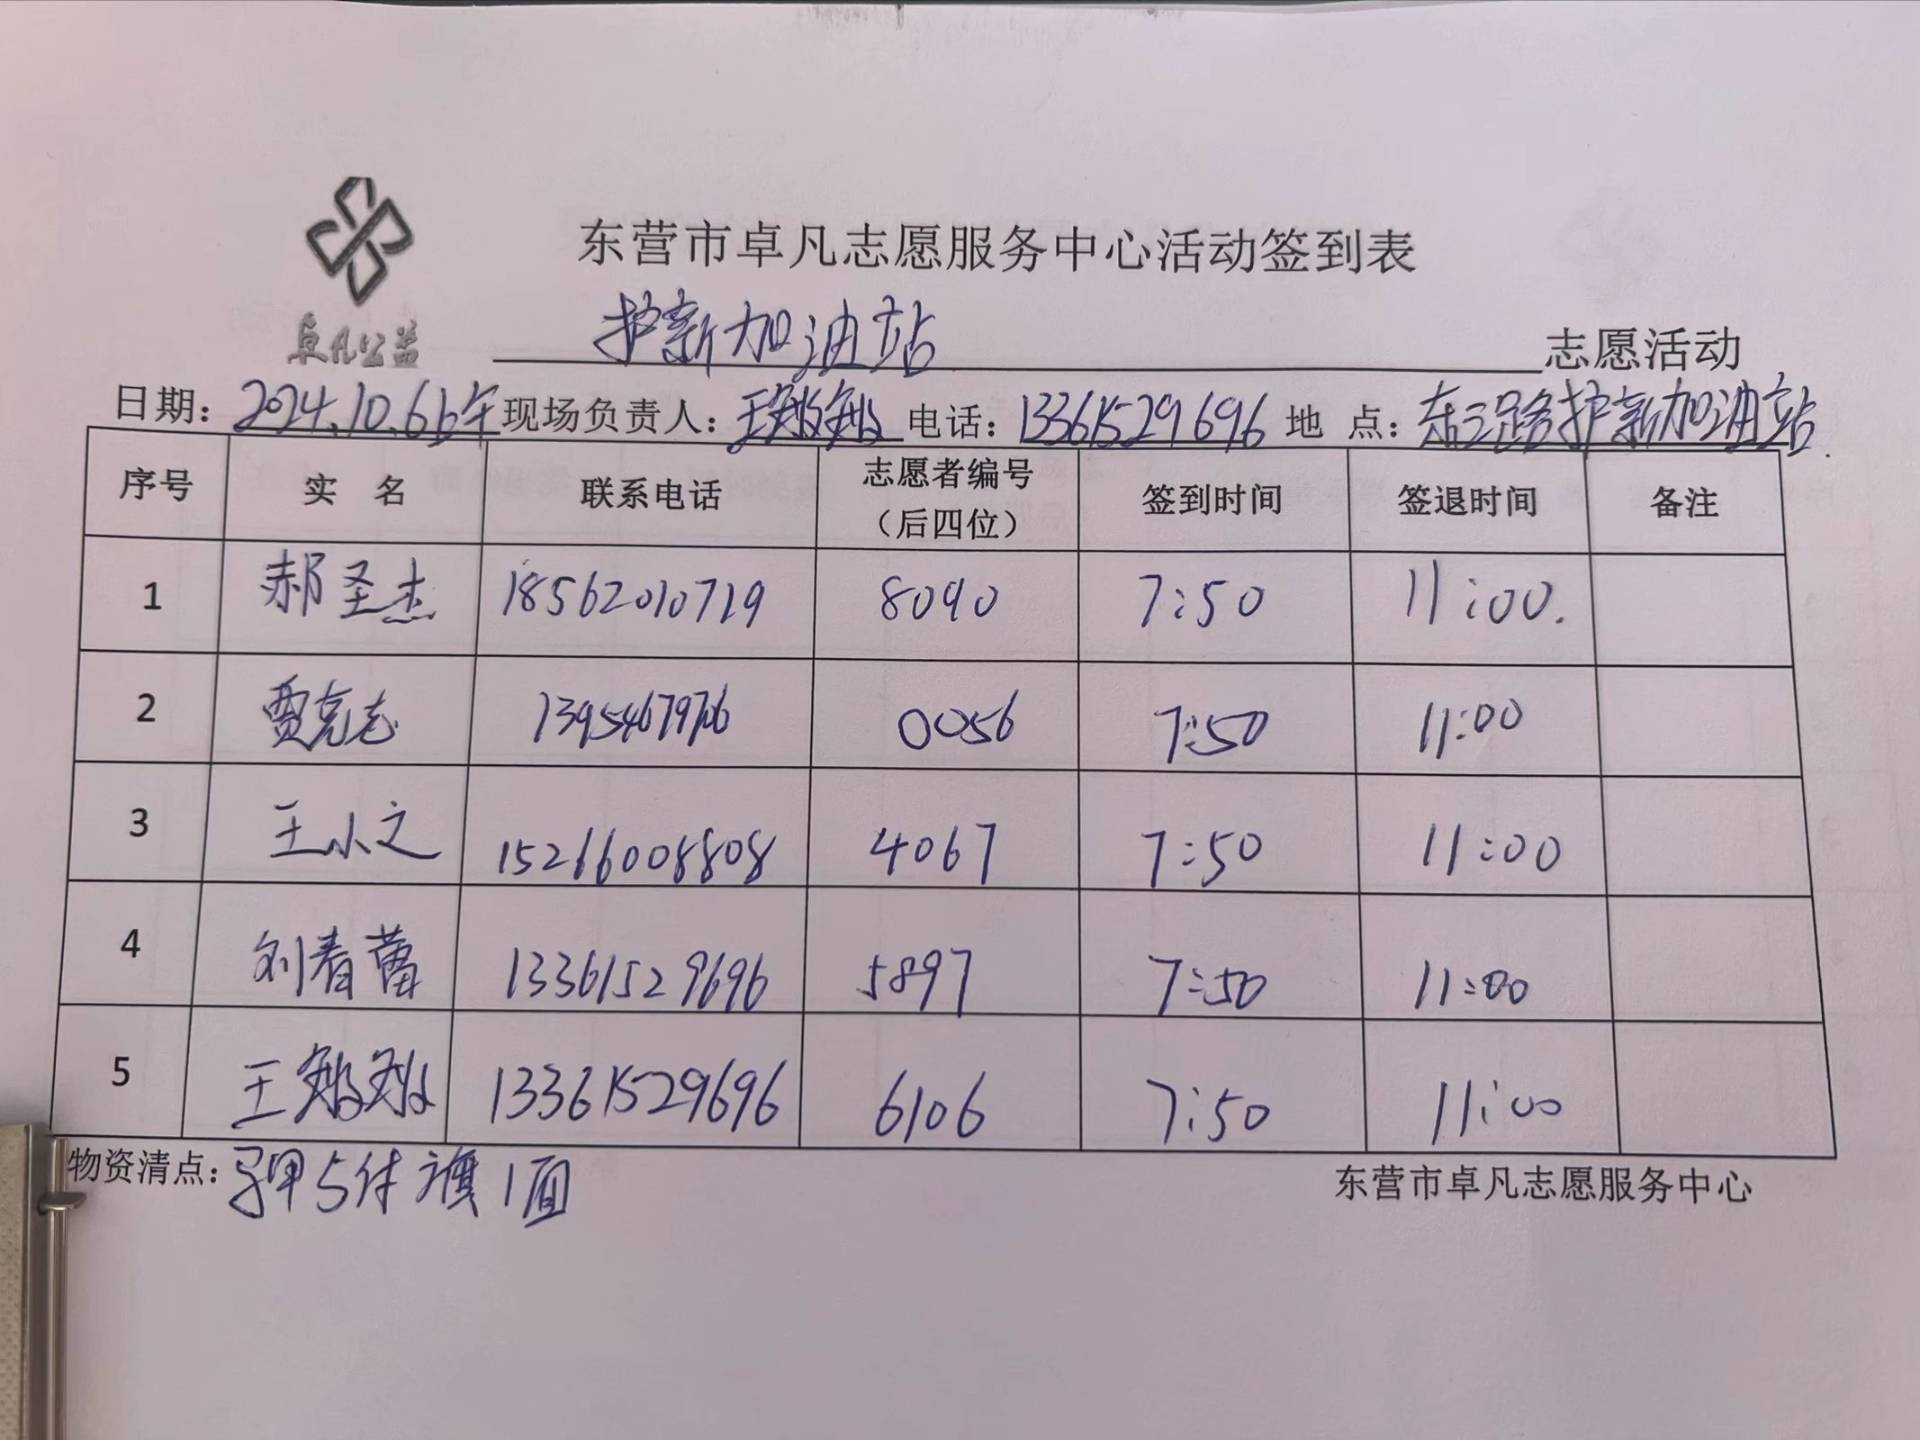 东营市卓凡志愿服务中心活动签到表
卓凡公益
护新加油站 志愿活动
日期：2024.10.6上午 现场负责人：王敏敏 电话：13361529696 地 点：东三路护新加油站.
序号 实 名 联系电话 志愿者编号（后四位） 签到时间 签退时间 备注
1 郝圣杰 18562010719 8090 7:50 11:00.
2 贾克志 0056 7:50 11:00
3 王小之 15266008808 4067 7:50 11:00
4 刘春蕾 13361529696 5897 7:50 11:00
5 王敏敏 13361529696 6106 7:50 11:00
物资清点：马甲5件 旗1面
东营市卓凡志愿服务中心